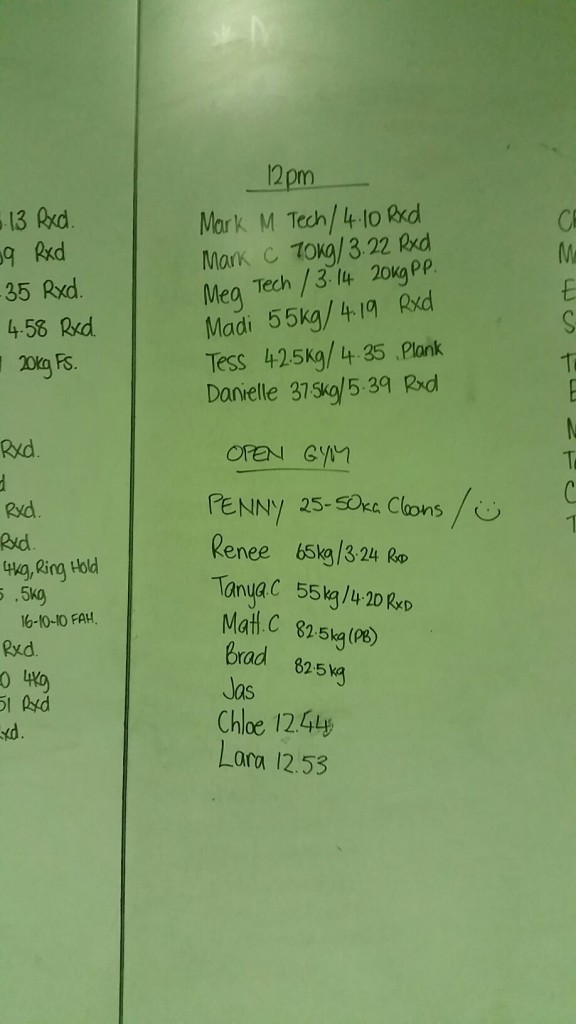 .13 Rxd.
9 Rxd
.35 Rxd.
4.58 Rxd.
20kg Fs.
Rxd.
d
Rxd.
Rxd.
4kg, Ring Hold
.5kg
16-10-10 FAH.
Rxd.
0 4kg
51 Rxd
xd.
12pm
Mark M Tech/4.10 Rxd
Mark C 70kg/3.22 Rxd
Meg Tech /3.14 20kg PP.
Madi 55kg/4.19 Rxd
Tess 42.5kg/4.35 .Plank
Danielle 37.5kg/5.39 Rxd
OPEN GYM
PENNY 25-50kg / :)
Renee 65kg/3.24 RxD
Tanya.C 55kg/4.20 RxD
Matt.C 82.5kg (PB)
Brad 82.5kg
Jas
Chloe 12.44
Lara 12.53